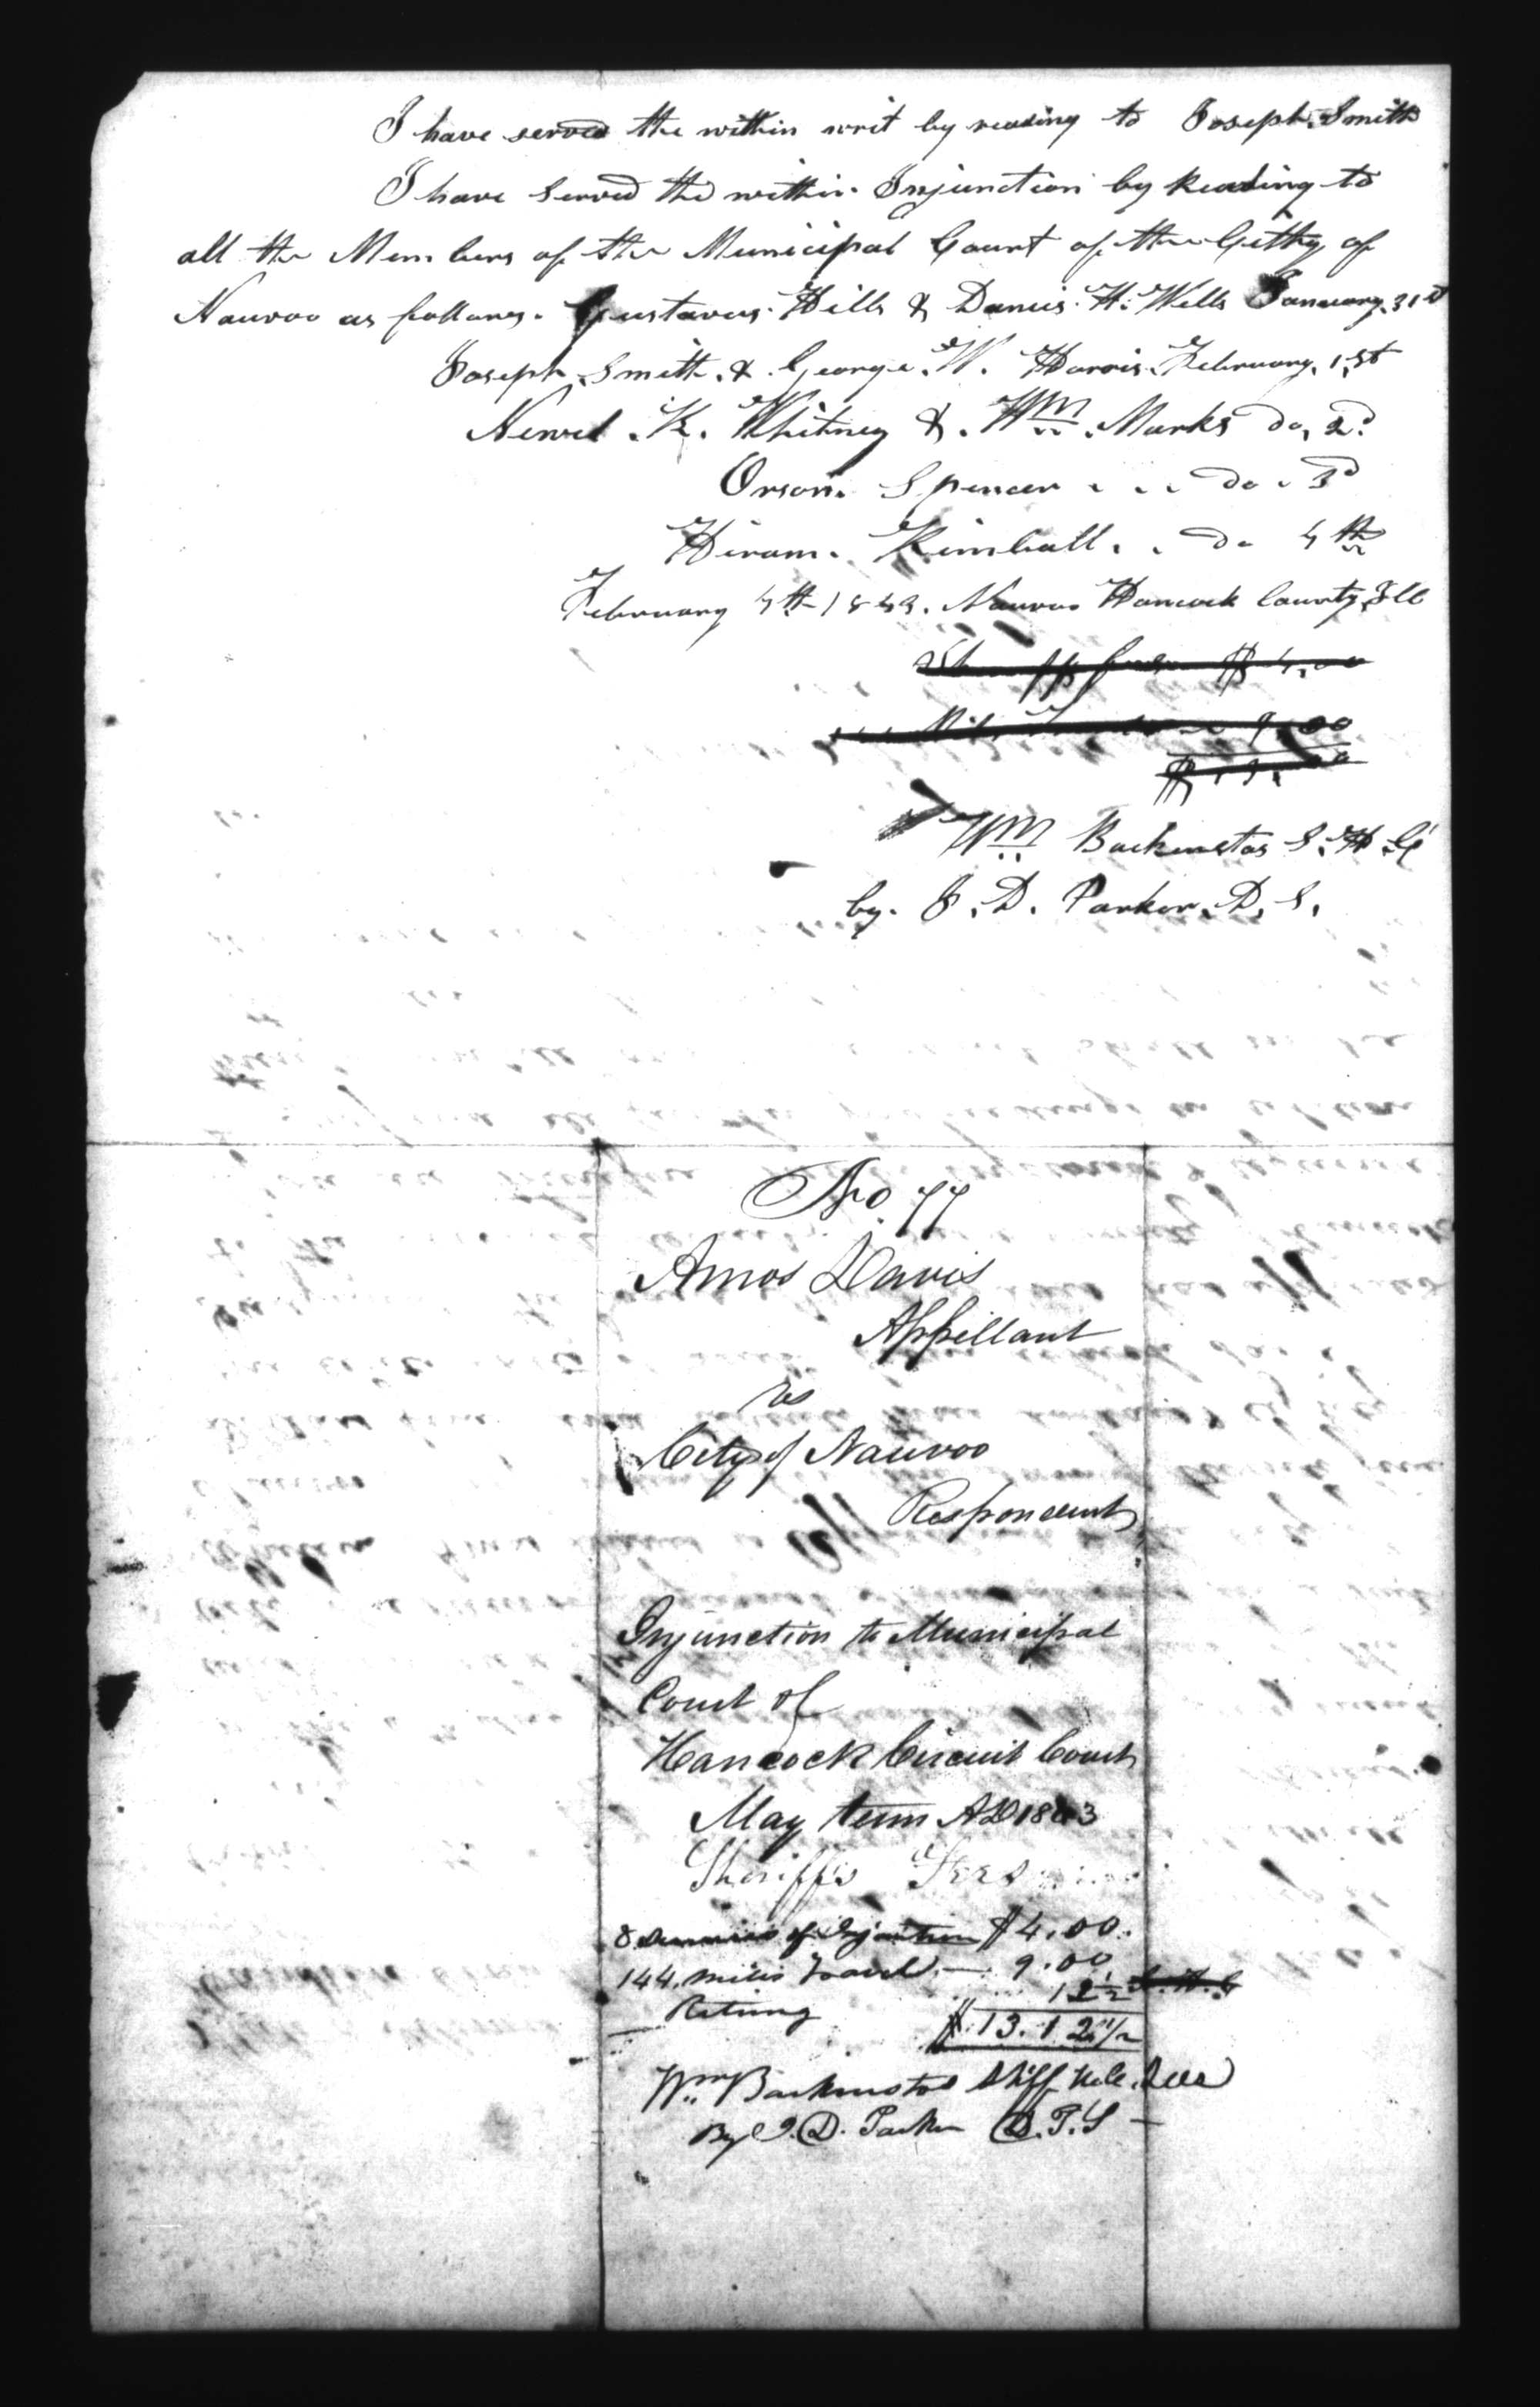 I have served the within writ by reading to Joseph Smith
I have served the within Injunction by Reading to
all the Members of the Municipal Court of the Citty of
Nauvoo as follows. Gustavus Hills & Daniel H. Wells January 31st
Joseph Smith & George W. Harris February 1st
Newel K. Whitney & Wm Marks do 2d
Orson Spencer do 3d
Hiram Kimball do 4th
February 4th 1843. Nauvoo Hancock County Ill
$ 4.00
9.00
Wm Backenstos S. H. C
by J. D. Parker D. S.
No 77
Amos Davis
Appellant
vs
City of Nauvoo
Respondent
Injunction to Municipal
Court of
Hancock Circuit Court
May term AD 1843
Sheriffs Fees
8 of Injunction $4.00
144 miles travel — 9.00
Returng 12 1/2
$13.12 1/2
Wm Backenstos Shff H. C. Ills
By J. D. Parker D. P. S